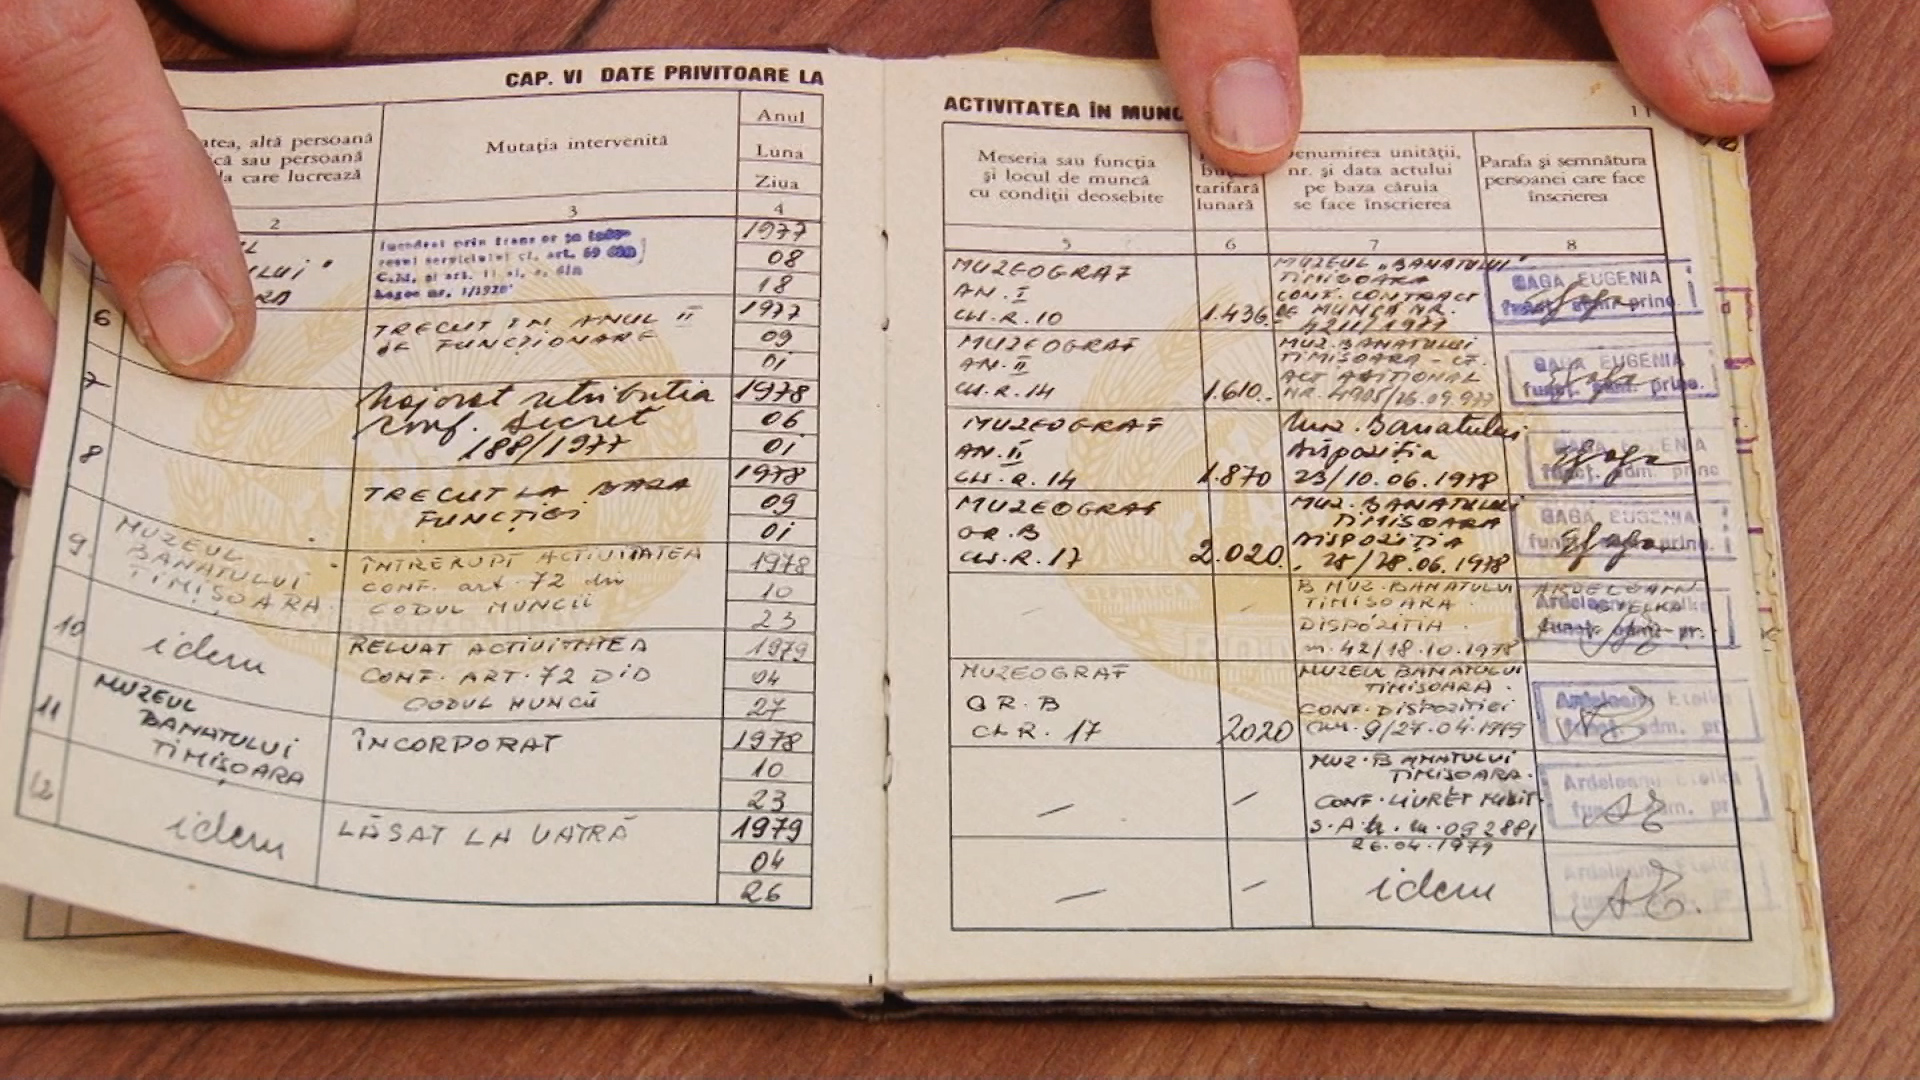 CAP. VI DATE PRIVITOARE LA
atea, altă persoană
că sau persoană
la care lucrează
Mutația intervenită
Anul
Luna
Ziua
2
3
4
1977
08
18
6
TRECUT IN ANUL II
DE FUNCȚIONARE
1977
09
01
7
Majorat retributia
conf. decret
188/1977
1978
06
01
8
TRECUT LA BAZA
FUNCȚIEI
1978
09
01
9.
MUZEUL
BANATULUI
TIMIȘOARA
ÎNTRERUPT ACTIVITATEA
CONF. art. 72 din
CODUL MUNCII
1978
10
23
10
idem
RELUAT ACTIVITATEA
CONF. ART. 72 DID
CODUL MUNCII
1979
04
27
11
MUZEUL
BANATULUI
TIMIȘOARA
ÎNCORPORAT
1978
10
23
12
idem
LĂSAT LA VATRĂ
1979
04
26
ACTIVITATEA ÎN MUNC
11
Meseria sau funcția
și locul de muncă
cu condiții deosebite
tarifară
lunară
enumirea unității,
nr. și data actului
pe baza căruia
se face înscrierea
Parafa și semnătura
persoanei care face
înscrierea
5
6
7
8
MUZEOGRAF
AN. I
CL.R. 10
1.436.
MUZEUL „BANATULUI"
TIMISOARA
CONF. CONTRACT
DE MUNCA NR.
4211/1977
GAGA EUGENIA
funct. adm. princ.
MUZEOGRAF
AN. II
CL.R. 14
1.610.
MUZ. BANATULUI
TIMISOARA - CF.
ACT ADITIONAL
NR. 4905/26.09.977
GAGA EUGENIA
funct. adm. princ.
MUZEOGRAF
AN. II
CL.R. 14
1.870
Muz. Banatului
Dispoziția
23/10.06.1978
funct. adm. princ
MUZEOGRAF
GR. B
CL.R. 17
2.020.
MUZ. BANATULUI
TIMISOARA
DISPOZIȚIA
28/28.06.1978
GAGA EUGENIA
funct. adm. princ.
B MUZ. BANATULUI
TIMISOARA
DISPOZITIA
nr. 42/18.10.1978
ARDELEANU
ETELKA
funct. adm. pr.
MUZEOGRAF
GR. B
CL R. 17
2020
MUZEUL BANATULUI
TIMISOARA.
CONF. DISPOZITIEI
9/27.04.1979
Ardeleanu Etelka
funct. adm. pr.
MUZ. BANATULUI
TIMISOARA.
CONF. LIVRET MILIT.
092881
26.04.1979
Ardeleanu Etelka
funct. adm. pr.
idem
Ardeleanu Etelka